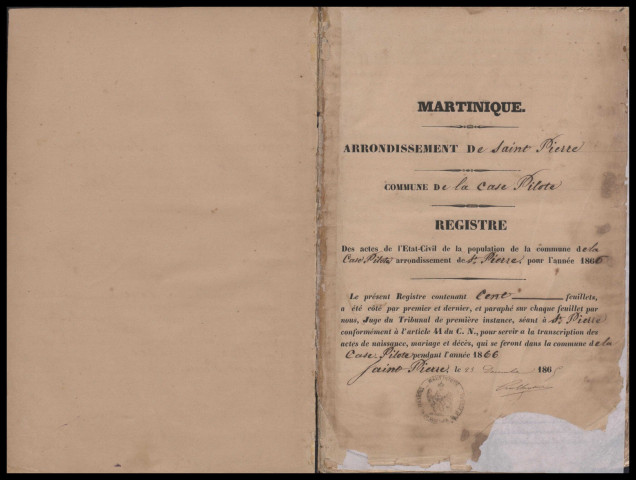 MARTINIQUE.
ARRONDISSEMENT De Saint Pierre
COMMUNE De la Case Pilote
REGISTRE
Des actes de l'Etat-Civil de la population de la commune de la
Case Pilote arrondissement de St Pierre, pour l'année 1866
Le présent Registre contenant Cent feuillets,
a été côté par premier et dernier, et paraphé sur chaque feuillet par
nous, Juge du Tribunal de première instance, séant à St Pierre
conformément à l'article 41 du C. N., pour servir à la transcription des
actes de naissance, mariage et décès, qui se feront dans la commune de la
Case Pilote pendant l'année 1866
Saint Pierre, le 186